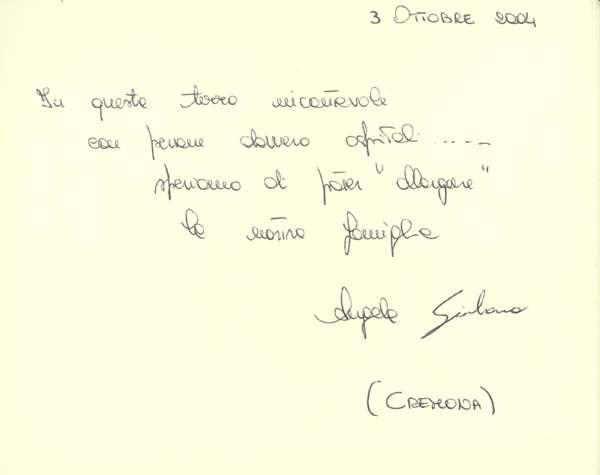 3 OTTOBRE 2004
In questa terra incantevole
con persone davvero ospitali.....
speriamo di poter "allargare"
la nostra famiglia
Angela Giuliano
(CREMONA)